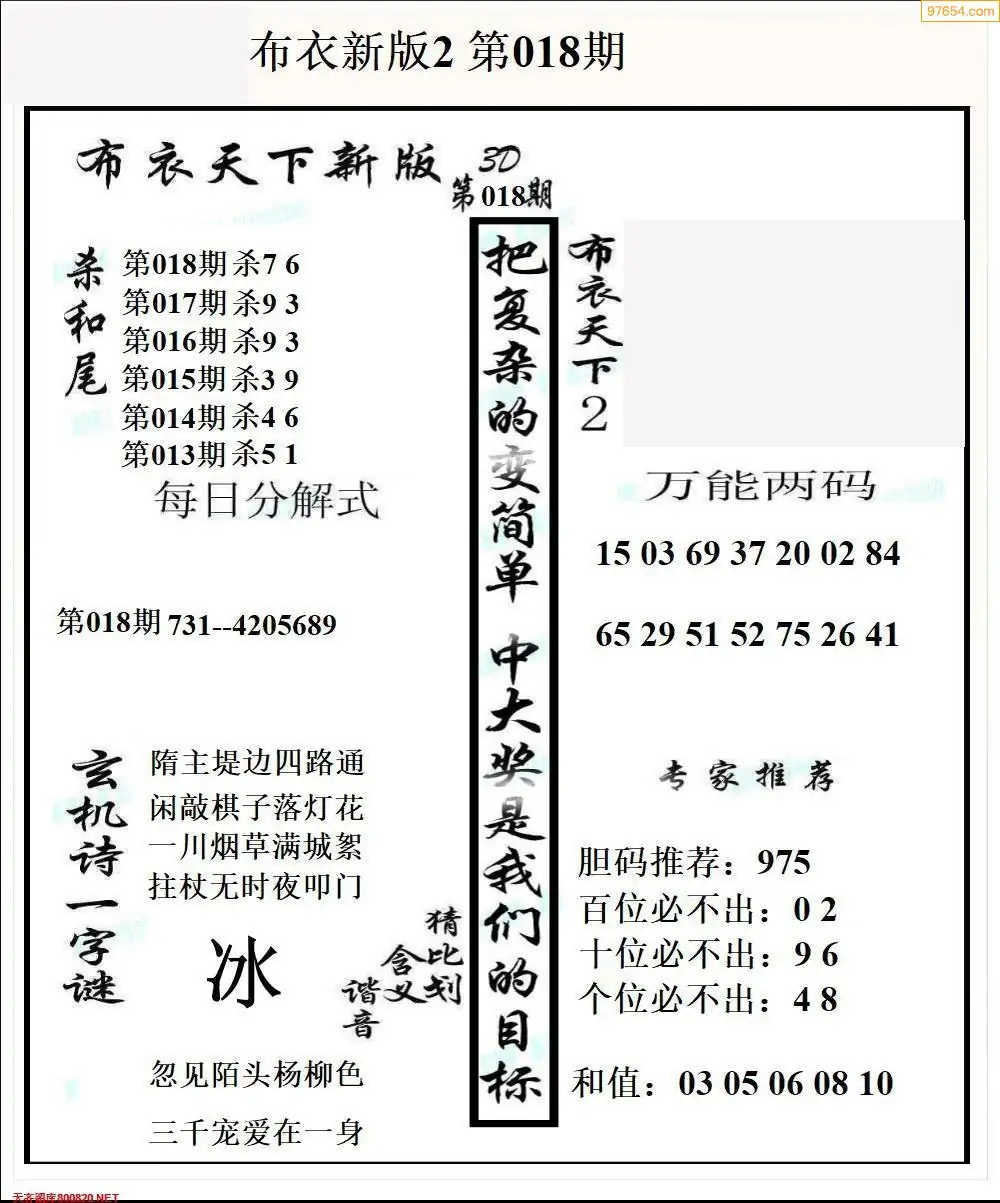 97654.com
布衣新版2 第018期
布衣天下新版 3D
第018期
杀和尾
第018期 杀7 6
第017期 杀9 3
第016期 杀9 3
第015期 杀3 9
第014期 杀4 6
第013期 杀5 1
每日分解式
第018期 731--4205689
玄机诗一字谜
隋主堤边四路通
闲敲棋子落灯花
一川烟草满城絮
拄杖无时夜叩门
冰
猜比划
含义
谐音
忽见陌头杨柳色
三千宠爱在一身
把复杂的变简单 中大奖是我们的目标
布衣天下2
万能两码
15 03 69 37 20 02 84
65 29 51 52 75 26 41
专家推荐
胆码推荐：975
百位必不出：0 2
十位必不出：9 6
个位必不出：4 8
和值：03 05 06 08 10
天齐图库800820.NET